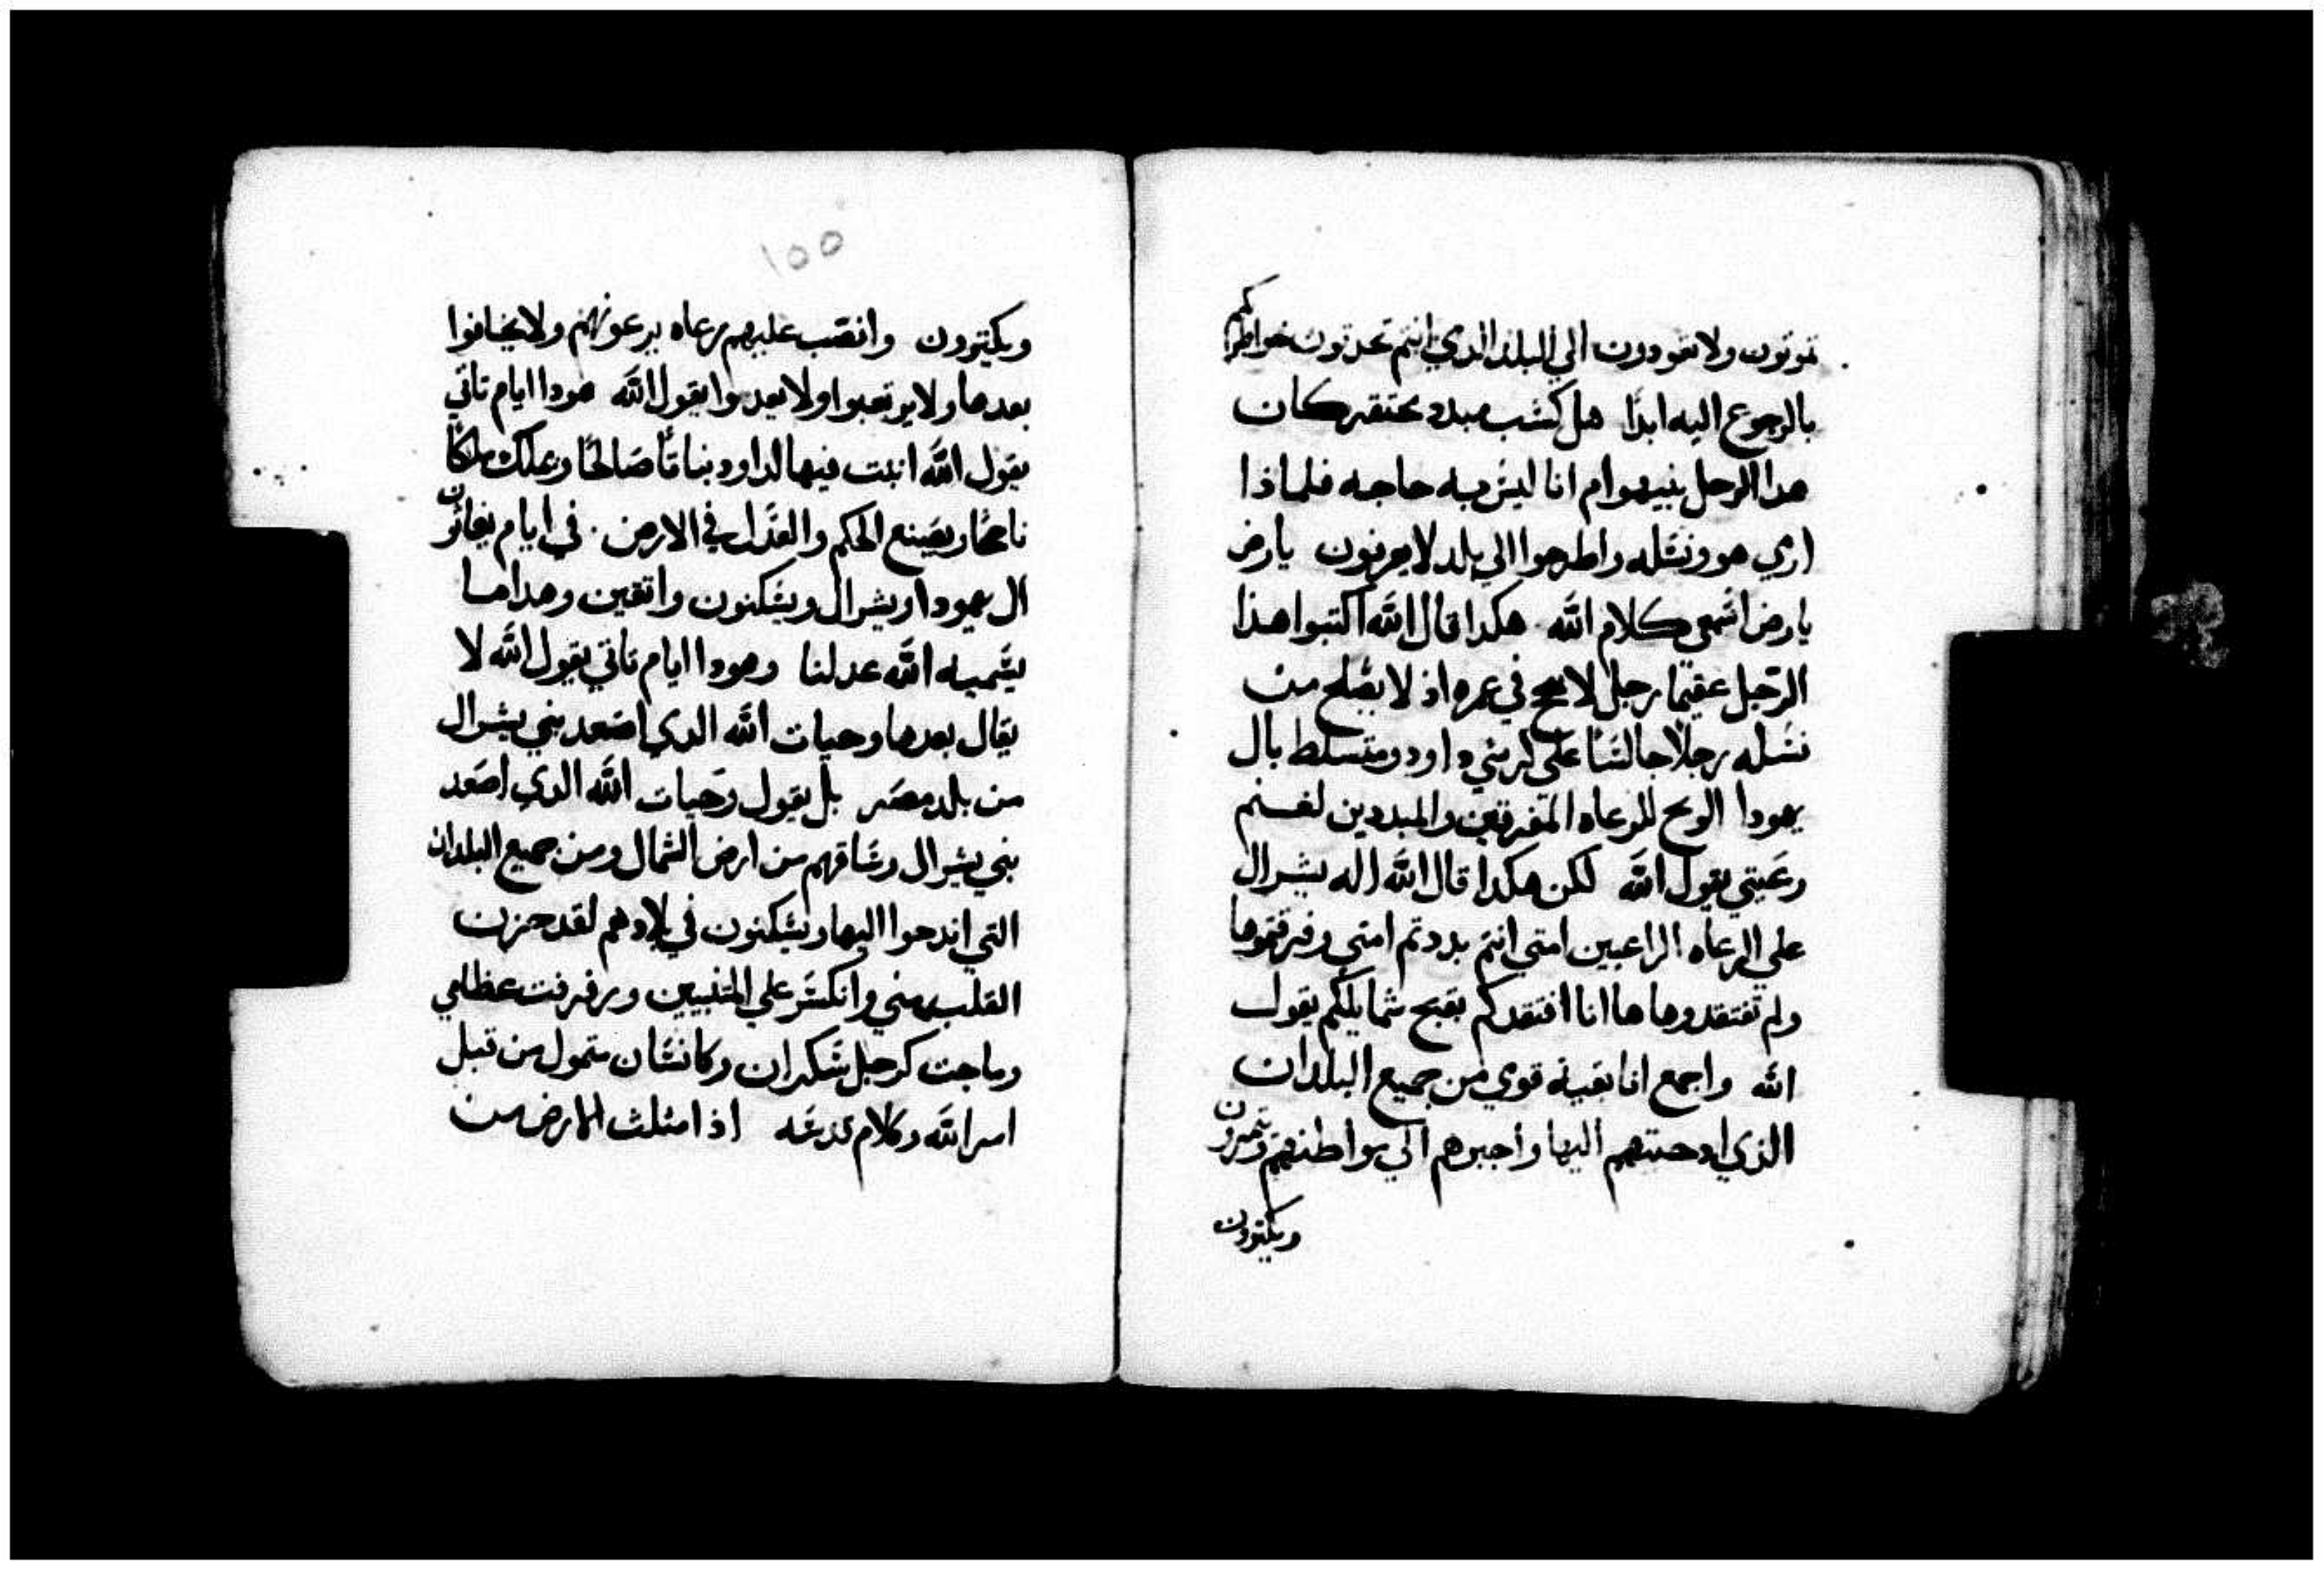 تموتون ولا تعودون الي البلد الدي انتم تحدتون خواطركم
بالرجوع اليه ابدًا هل كشب مبدد محتقر كان
هدا الرجل بنيهو ام انا ليس به حاجه فلماذا
ارمي هو ونسله واطرحوا الي بلد لا يعرفون يارض
يارض اسمعي كلام الله هكدا قال الله اكتبوا هذا
الرجل عقيمًا رجل لا ينجح في عمره اذ لا يصلح من
نسله رجلا جالسًا علي كرسي داود ومتسلط بال
يهودا الويح للرعاه المفرقين والمبددين لغنم
رعيتي يقول الله لكن هكدا قال الله اله يشرال
علي الرعاه الراعيين امتي انتم بددتم امتي وفرقتموها
ولم تفتقدوها ها انا افتقدكم بقبح شمايلكم يقول
الله واجمع انا بقية قومي من جميع البلدان
الذي ادحتهم اليها واجبرهم الي مواطنهم ويتمرون
ويكترون
١٥٥
ويكيترون وانصب عليهم رعاه يرعونهم ولا يخافوا
بعدها ولا يرتعبوا ولا يعدموا يقول الله هودا ايام تاتي
يقول الله انبت فيها لداود نباتًا صالحًا ويملك ملكًا
ناجحًا ويصنع الحكم والعدل في الارض في ايام يغاثون
ال يهودا ويشرال ويسكنون واتقين وهدا ما
يسميه الله عدلنا وهودا ايام تاتي يقول الله لا
يقال بعدها وحيات الله الدي اصعد بني يشرال
من بلد مصر بل يقول وحيات الله الدي اصعد
بني يشرال وساقهم من ارض الشمال ومن جميع البلدان
التي اندحوا اليها ويسكنون في بلادهم لقد حزن
القلب مني وانكسر علي المتنبيين ورفرفت عظامي
وماجت كرجل سكران وكانسان متمول من قبل
امر الله وكلام قدسه اذ امتلت الارض من